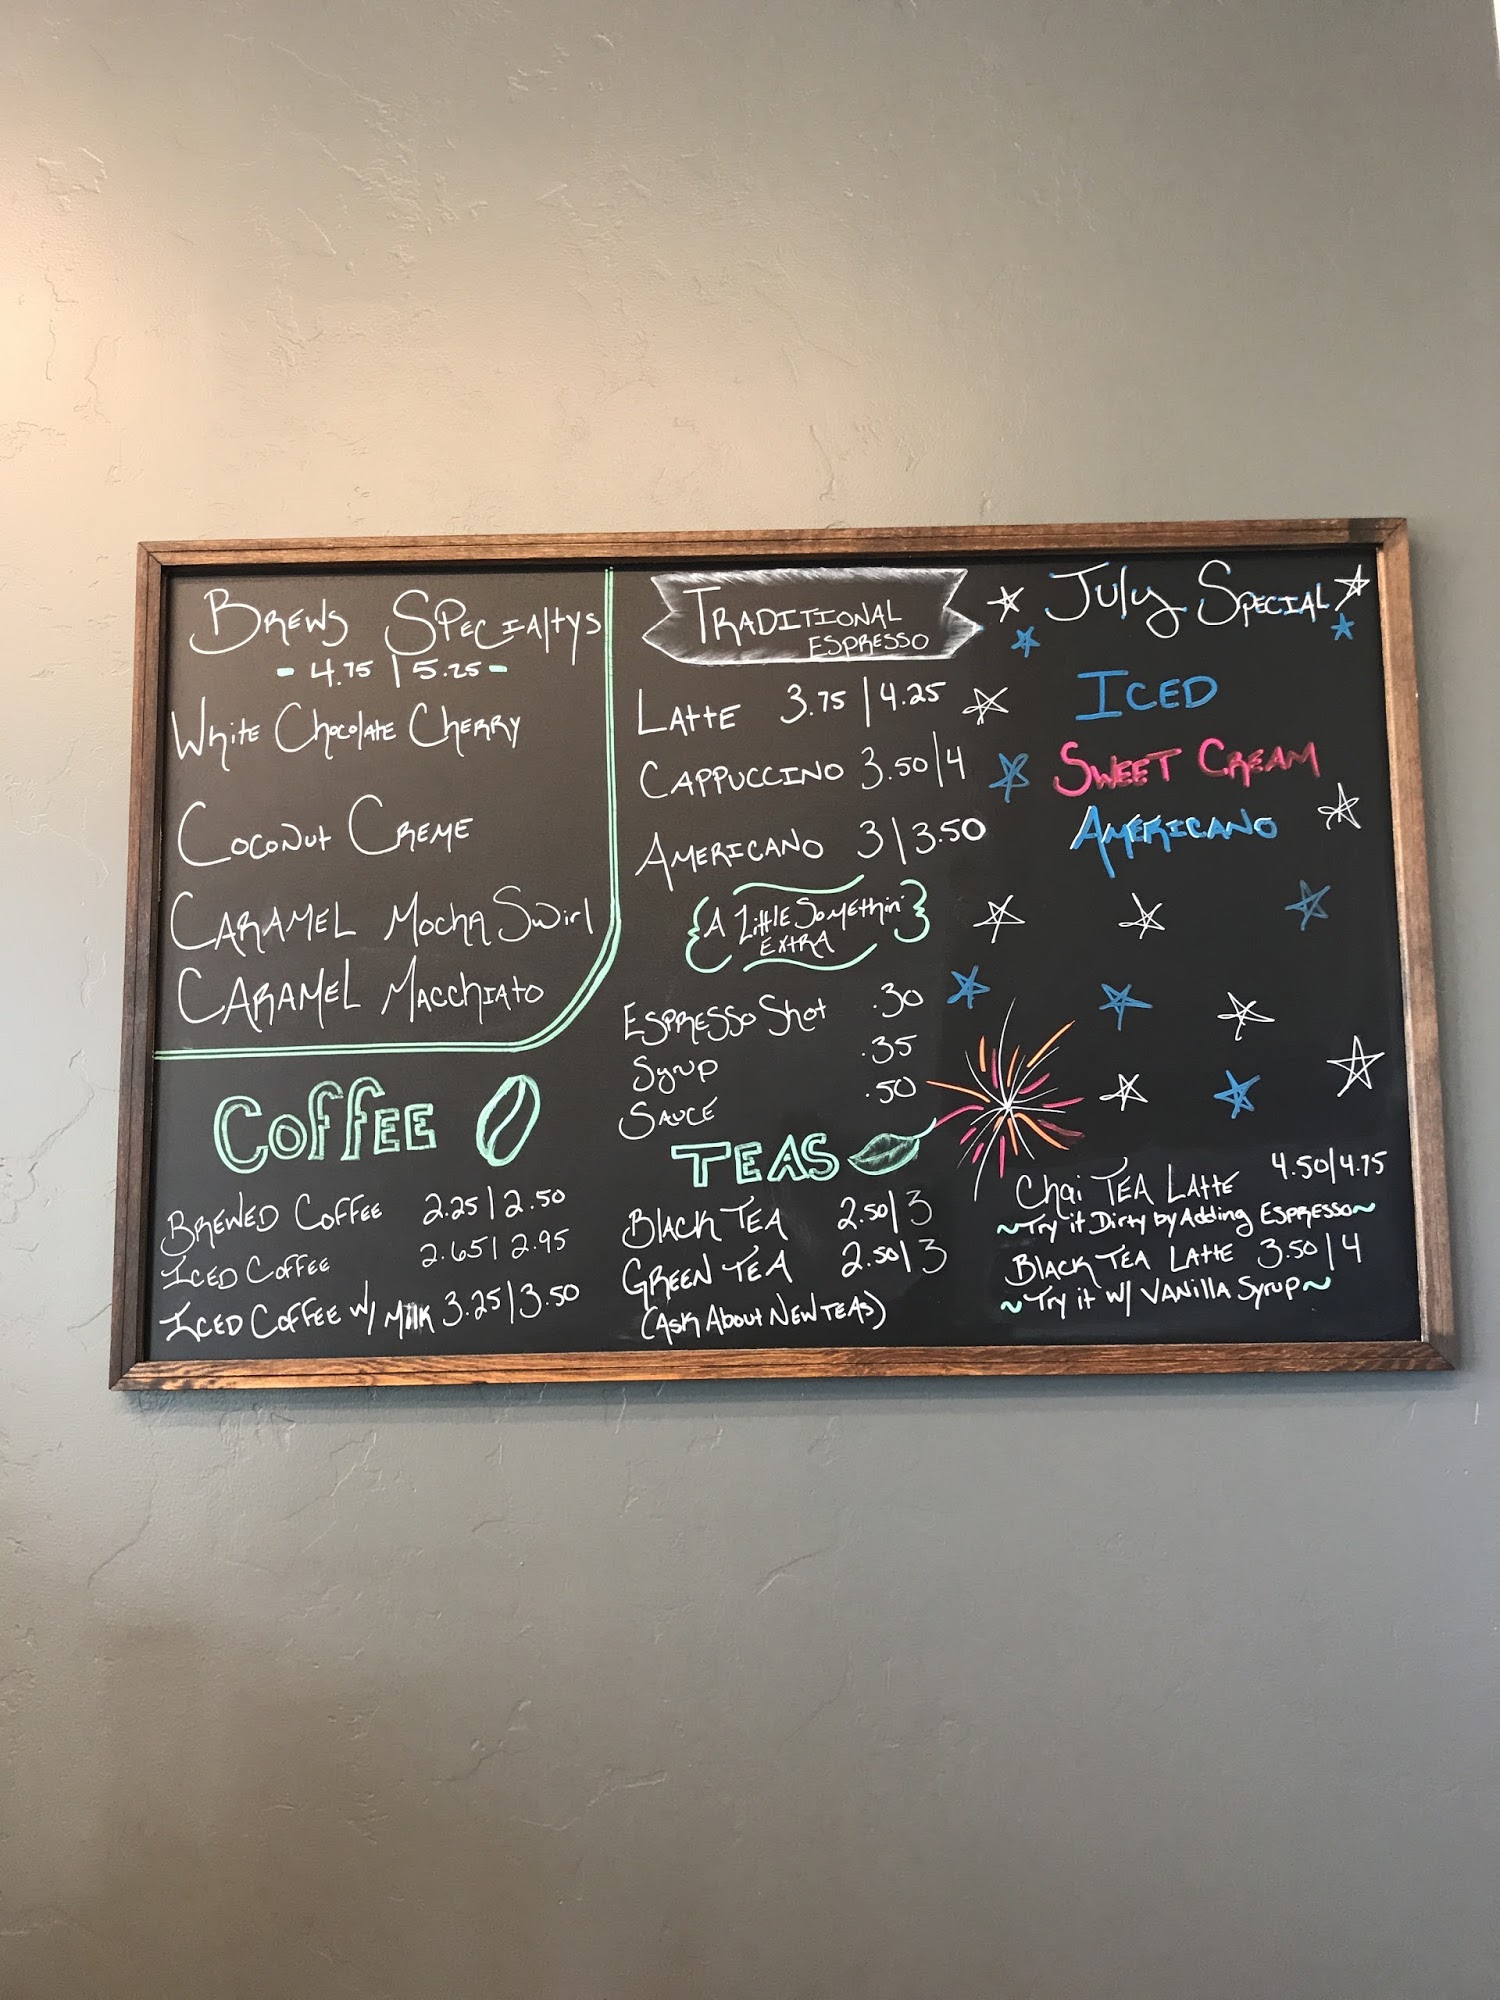 Brews Specialtys
- 4.75 | 5.25 -
White Chocolate Cherry
Coconut Creme
Caramel Mocha Swirl
Caramel Macchiato
Coffee
Brewed Coffee 2.25 | 2.50
Iced Coffee 2.65 | 2.95
Iced Coffee w/ Milk 3.25 | 3.50
Traditional
Espresso
Latte 3.75 | 4.25
Cappuccino 3.50 | 4
Americano 3 | 3.50
{A Little Somethin'
Extra}
Espresso Shot .30
Syrup .35
Sauce .50
Teas
Black Tea 2.50 | 3
Green Tea 2.50 | 3
(Ask About New Teas)
July Special
Iced
Sweet Cream
Americano
Chai Tea Latte 4.50 | 4.75
~Try it Dirty by Adding Espresso~
Black Tea Latte 3.50 | 4
~Try it w/ Vanilla Syrup~